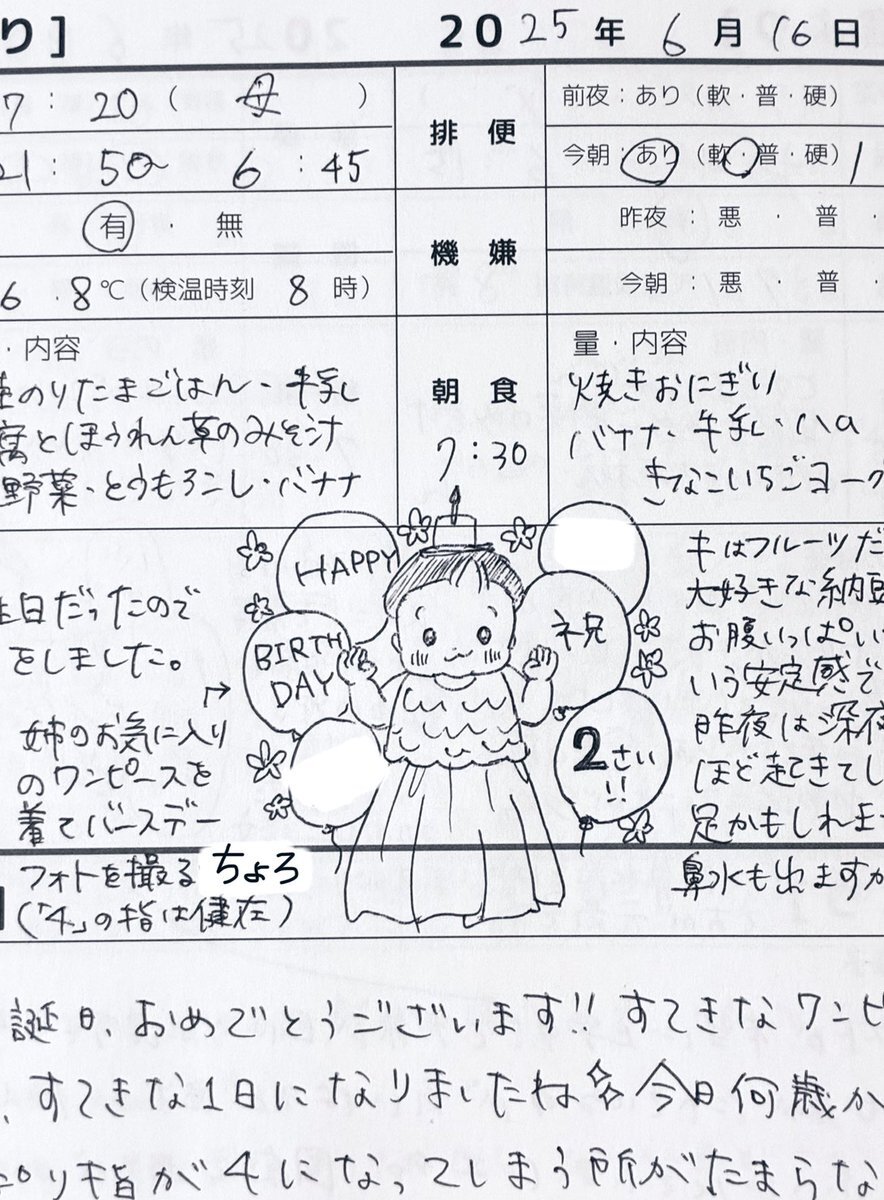 り] 2025年 6月 16日
7：20（ 母 ）
排便
前夜：あり（軟・普・硬）
今朝：あり（軟・普・硬）1
21：50〜6：45
有・無
機嫌
昨夜：悪・普・
今朝：悪・普
6.8℃（検温時刻 8時）
・内容
のりたまごはん・牛乳
腐とほうれん草のみそ汁
野菜・とうもろこし・バナナ
朝食
7：30
量・内容
焼きおにぎり
バナナ・牛乳・いへ
きなこいちごヨーグ
生日だったので
をしました。
姉のお気に入り
のワンピースを
着てバースデー
フォトを撮るちょろ
(「4」の指は健在)
HAPPY
BIRTH
DAY
祝
2さい
!!
キはフルーツだ
大好きな納豆
お腹いっぱい
いう安定感で
昨夜は深夜
ほど起きてし
足かもしれま
鼻水も出ますか
誕日、おめでとうございます!! すてきなワンピ
すてきな1日になりましたね 今日何歳か
指が4になってしまう所がたまらな